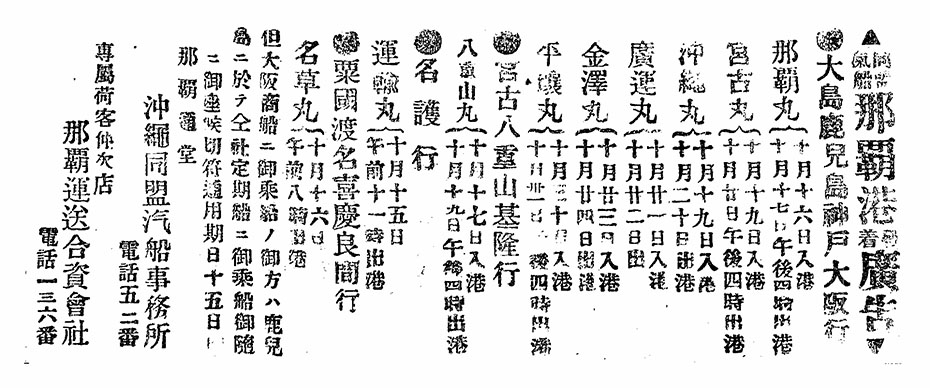 同盟汽船那覇港發着廣告
大島鹿兒島神戸大阪行
那覇丸 十月十六日入港 十月十七日午後四時出港
宮古丸 十月十九日入港 十月廿日午後四時出港
沖縄丸 十月十九日入港 十月二十日出港
廣運丸 十月廿一日入港 十月廿二日出港
金澤丸 十月廿三日入港 十月廿四日出港
平壤丸 十月三十日入港 十月卅一日午後四時出港
宮古八重山基隆行
八重山丸 十月十七日入港 十月十九日午後四時出港
名護行
運輸丸 十月十五日 午前十一時出港
粟國渡名喜慶良間行
名草丸 十月十六日 午前八時出港
但大阪商船ニ御乘船ノ御方ハ鹿兒
島ニ於テ仝社定期船ニ御乘船御隨
ニ御座候切符通用期日十五日間
那覇通堂
沖繩同盟汽船事務所
電話五二番
專屬荷客仲次店
那覇運送合資會社
電話一三六番